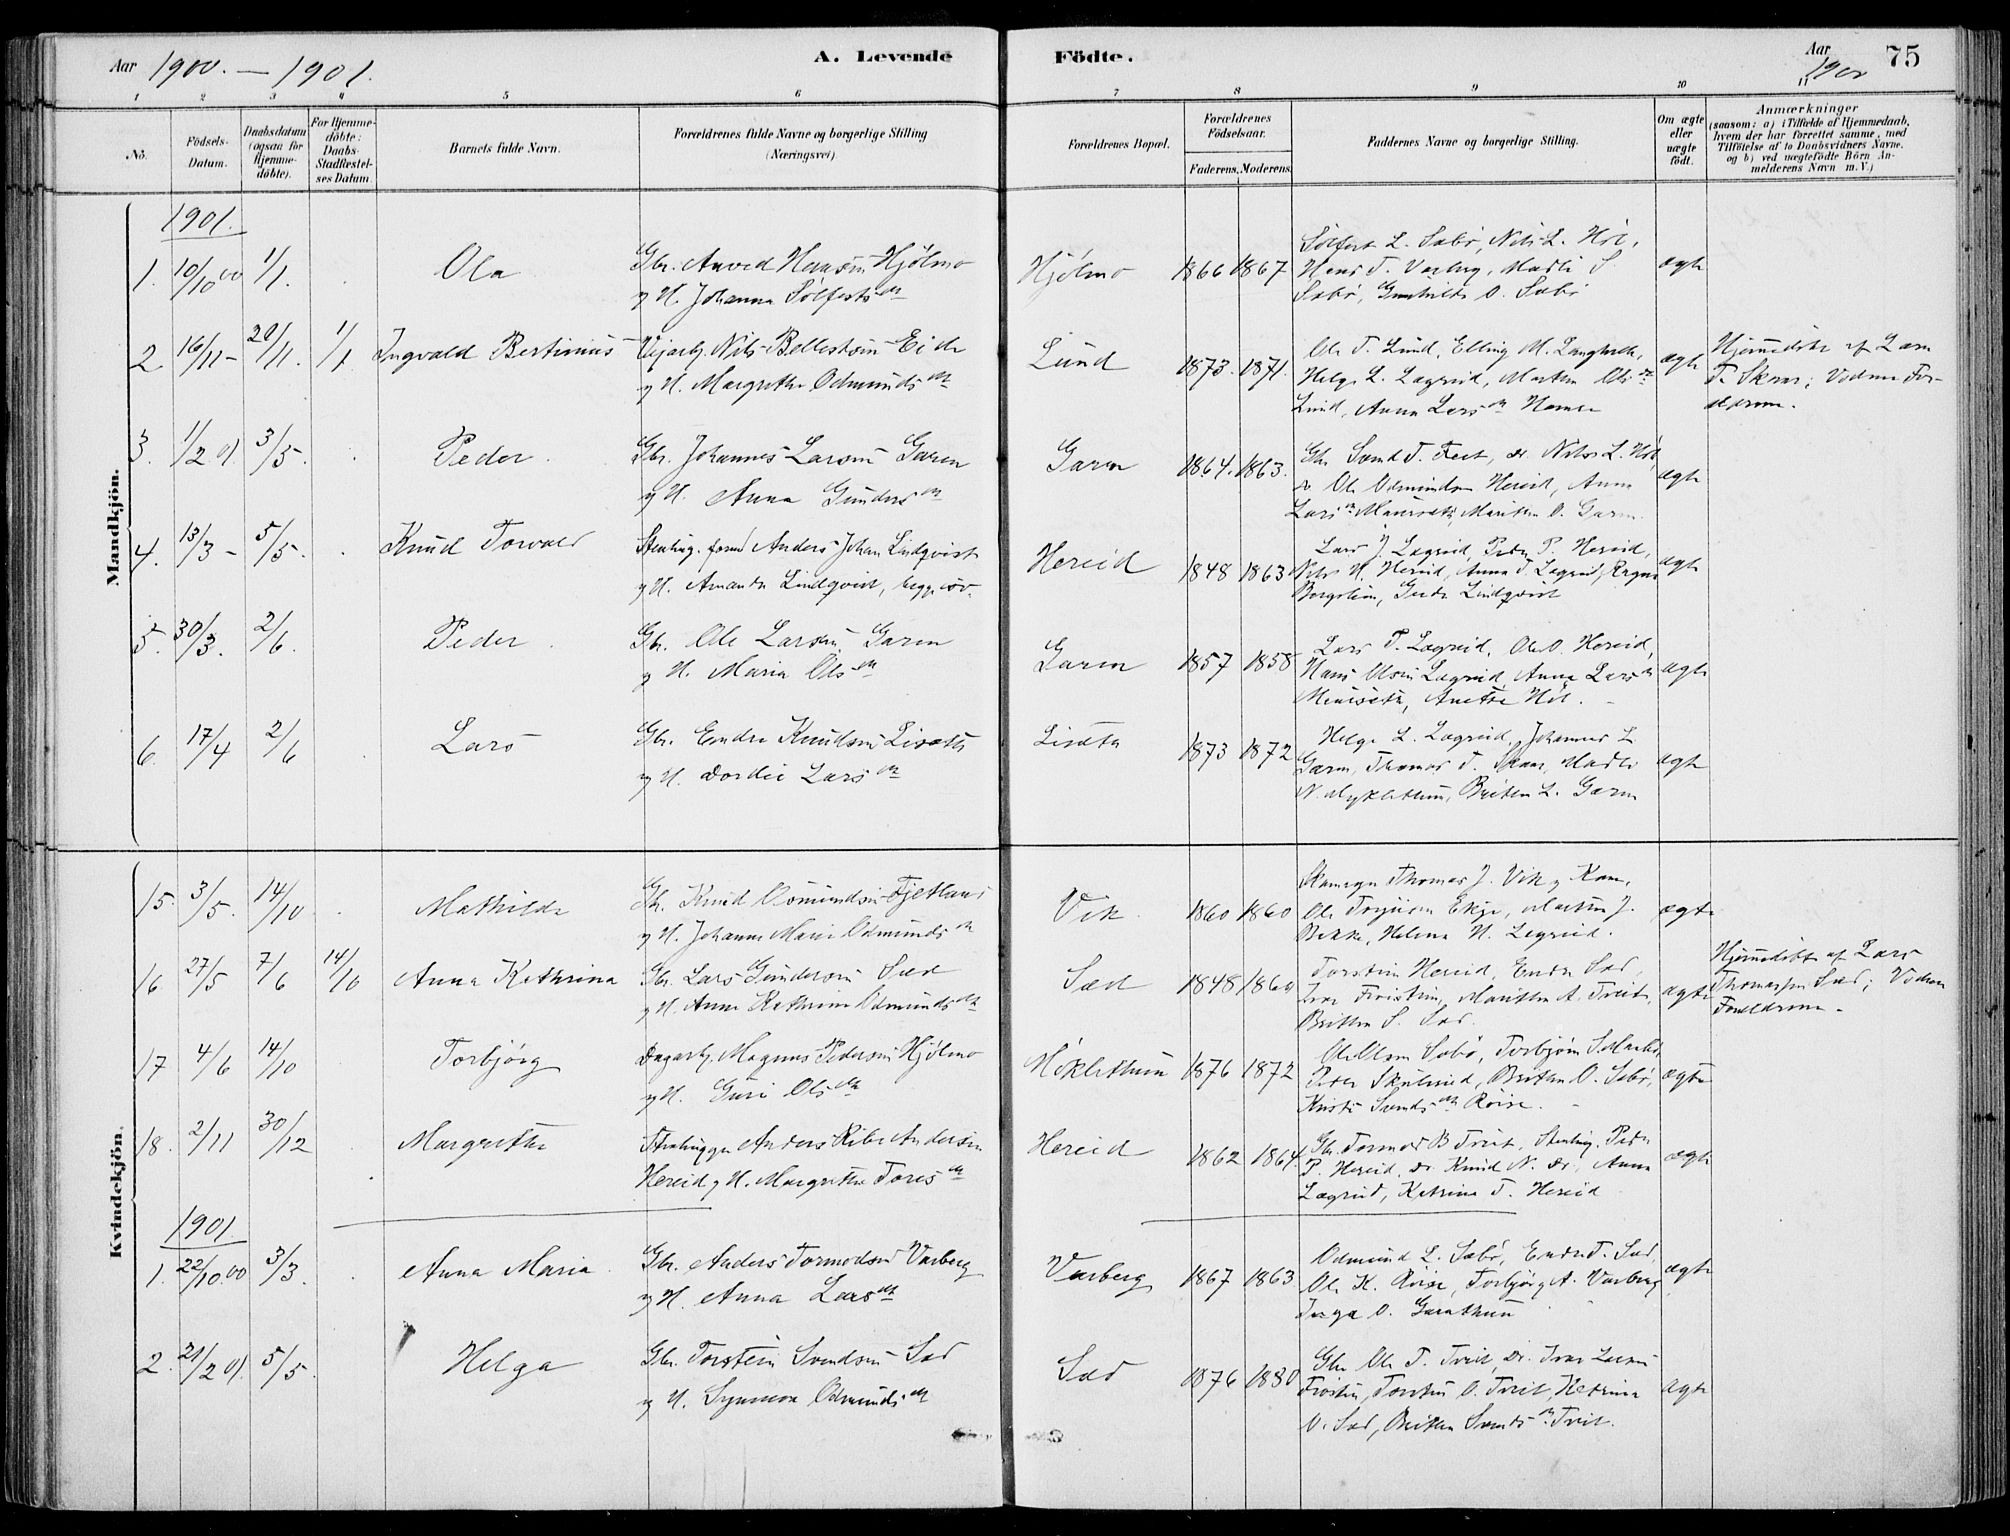 Aar 1900. — 1901.
A. Levende Födte.
Aar 1900
75
1 2 3 4 5 6 7 8 9 10 11
No.
Födsels-Datum.
Daabsdatum (ogsaa for Hjemme-döbte).
For Hjemme-döbte: Daabs-Stadfæstel-ses Datum.
Barnets fulde Navn.
Forældrenes fulde Navne og borgerlige Stilling (Næringsvei).
Forældrenes Bopæl.
Forældrenes Födselsaar.
Faderens. Moderens.
Faddernes Navne og borgerlige Stilling.
Om ægte eller uægte födt.
Anmærkninger
(saasom: a) i Tilfælde af Hjemmedaab, hvem der har forrettet samme, med Tilföielse af to Daabsvidners Navne. og b) ved uægtefödte Börn An-melderens Navn m.V.)
Mandkjön.
1901.
1. 10/10 00 1/1. Ola
Gbr. Anved Hansen Hjölmo
og H. Johanna Sölfestsdt
Hjölmo 1866 1867
Sölfest L. Sæbö, Nils L. Höl,
Hans T. Varberg, Madli S.
Sæbö, Gunhild O. Sæbö
ægte
2 16/11 - 20/11. 1/1 Ingvald Bertinius
Vejarb. Nils Bellestsen Eide
og H. Margrethe Odmundsdt
Lund 1873. 1871.
Ole T. Lund, Elling M.
Helge L. Lægreid, Marthe Olsdt
Lund, Anna Larsdt
ægte
Hjemmedöbt af Lars
T. Skaar; Vidner For-
ældrene.
3. 1/2 01. 3/5. Peder.
Gbr. Johannes Larsen Garen
og H. Anna Gundersdt
Garen 1864. 1863.
Gbr. Svend T. Tveit, do. Nils L. Höl,
do. Ole Odmundsen Hereid, Anna
Larsdt Maurset, Marithe O. Garen.
ægte
4. 13/3 - 5/5. Knud Torvald
Stenhug. Anders Johan Lindqvist
og H. Amanda Lindqvist,
Hereid 1848 1863
Lars J. Lægreid, Peder P. Hereid,
Nils H. Hereid, Anna T. Lægreid,
Lindqvist
ægte
5. 30/3. 2/6. Peder.
Gbr. Ole Larsen Garen
og H. Maria Olsdt
Garen 1857 1858
Lars T. Lægreid, Ole O. Hereid,
Hans Olsen Lægreid, Anna Larsdt
Maurset, Anetta Höl.
ægte
6. 17/4 2/6 Lars
Gbr. Endre Knudsen Lisæte
og H. Dordei Larsdt
Lisæte 1873 1872
Helge L. Lægreid, Johannes L.
Garen, Thomas T. Skaar, Madli
N. Myklethun, Britha L. Garen
ægte
Kvindekjön.
15. 3/5. 14/10 Mathilde
Gbr. Knud Osmundsen Fjetland
og H. Johanne Marie Odmundsdt
Vik. 1860 1860
Thomas J. Vik og Kone,
Ole Torgeirsen Eige, Martha J.
Bakke, Helena H. Legreid.
ægte
16 27/5 7/6 14/10 Anna Kathrina
Gbr. Lars Gundersen Sæd
og H. Anna Kathrine Odmundsdt
Sæd 1848 1860
Torstein Hereid, Endre Sæd,
Ivar Tröstein, Marithe A. Tveit,
Britha S. Sæd.
ægte
Hjemmedöbt af Lars
Thomassen Sæd; Vidner
Forældrene.
17 4/6 14/10 Torbjörg
Dagarb. Magnus Pedersen Hjölmo
og H. Guri Olsdt
Möklethun 1876 1872
Ole Olsen Sæbö, Torbjörn
Peder Skulerud, Britha O. Sæbö,
Kristi Svendsdt Röise.
ægte
18. 2/11 30/12 Margrethe
Stenhugger Anders Ribe Andersen
Hereid og H. Margrethe Toresdt
Hereid 1862 1864.
Gbr. Tormod B. Tveit, Stenhug. Peder
P. Hereid, do. Knud N. do., Anna
Lægreid, Katrina T. Hereid
ægte
1901.
1. 22/10.00 3/3. Anna Maria.
Gbr. Anders Tormodsen Varberg
og H. Anna Larsdt
Varberg 1867 1863
Odmund L. Sæbö, Endre T. Sæd,
Ole K. Röise, Torbjörg A. Varberg,
Inga O. Garathun
ægte
2. 21/2 01. 5/5. Helga
Gbr. Torstein Svendsen Sæd
og H. Synneva Odmundsdt
Sæd 1876 1880
Gbr. Ole T. Tveit, do. Ivar Larsen
Tröstein, Torstein O. Tveit, Katrina
O. Sæd, Britha Svendsdt Tveit.
ægte